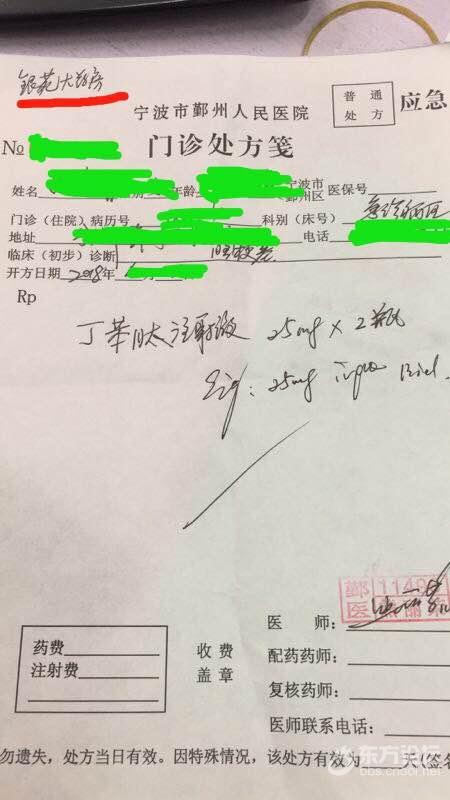 银苑大药房
宁波市鄞州人民医院
普通
处方
应急
门诊处方笺
№
姓名 年龄 宁波市
鄞州区 医保号
门诊(住院)病历号 科别(床号)
地址 电话
临床(初步)诊断
开方日期 2018年
Rp
丁苯肽注射液 25mg × 2瓶
Sig: 25mg ivgtt Bid.
鄞 1149
医
医 师:
药费
注射费
收费
盖章
配药药师:
复核药师:
医师联系电话:
勿遗失,处方当日有效。因特殊情况,该处方有效为 天(签名
东方论坛
bbs.cnool.net